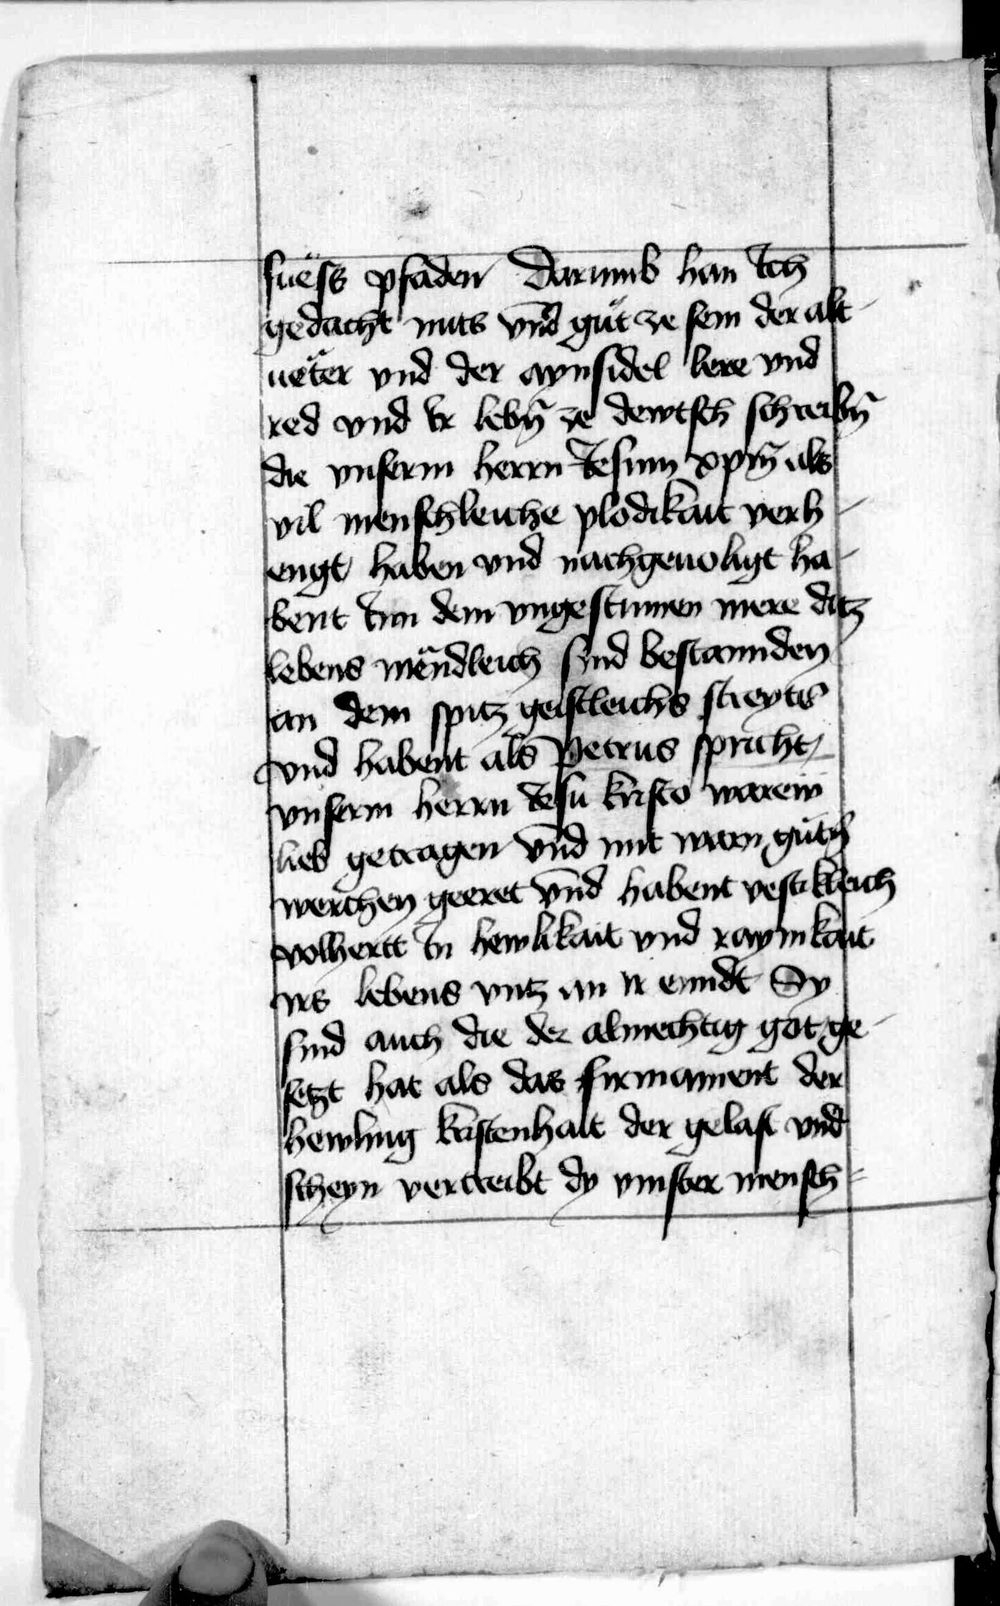 fuëss pfaden Darumb han Ich
gedacht nutz vnd guͦt ze sein der alt
uëter vnd der aynsidel lere vnd
red vnd Ir lebn̄ ze dewtsch schreibn̄
die vnserm herrn Iesum xpm̄ als
vil menschleiche plodikait verh
engt haben vnd nachgeuoligt ha
bent Inn dem vngestumen mere ditz
lebens mëndleich sind bestannden
an dem spitz geistleichs streyts
vnd habent als Petrus spricht
vnserm herrn Iesu kristo warew
lieb getragen vnd mit warn gutn̄
werchen geeret vnd habent vestikleich
volhertt In hewlikait vnd raynikait
yrs lebens vntz an ir ennde Dy
sind auch die der almechtig got ge
setzt hat als das firmament der
hewling kristenhait der gelast vnd
scheyn vertreibt dy vinster mensch